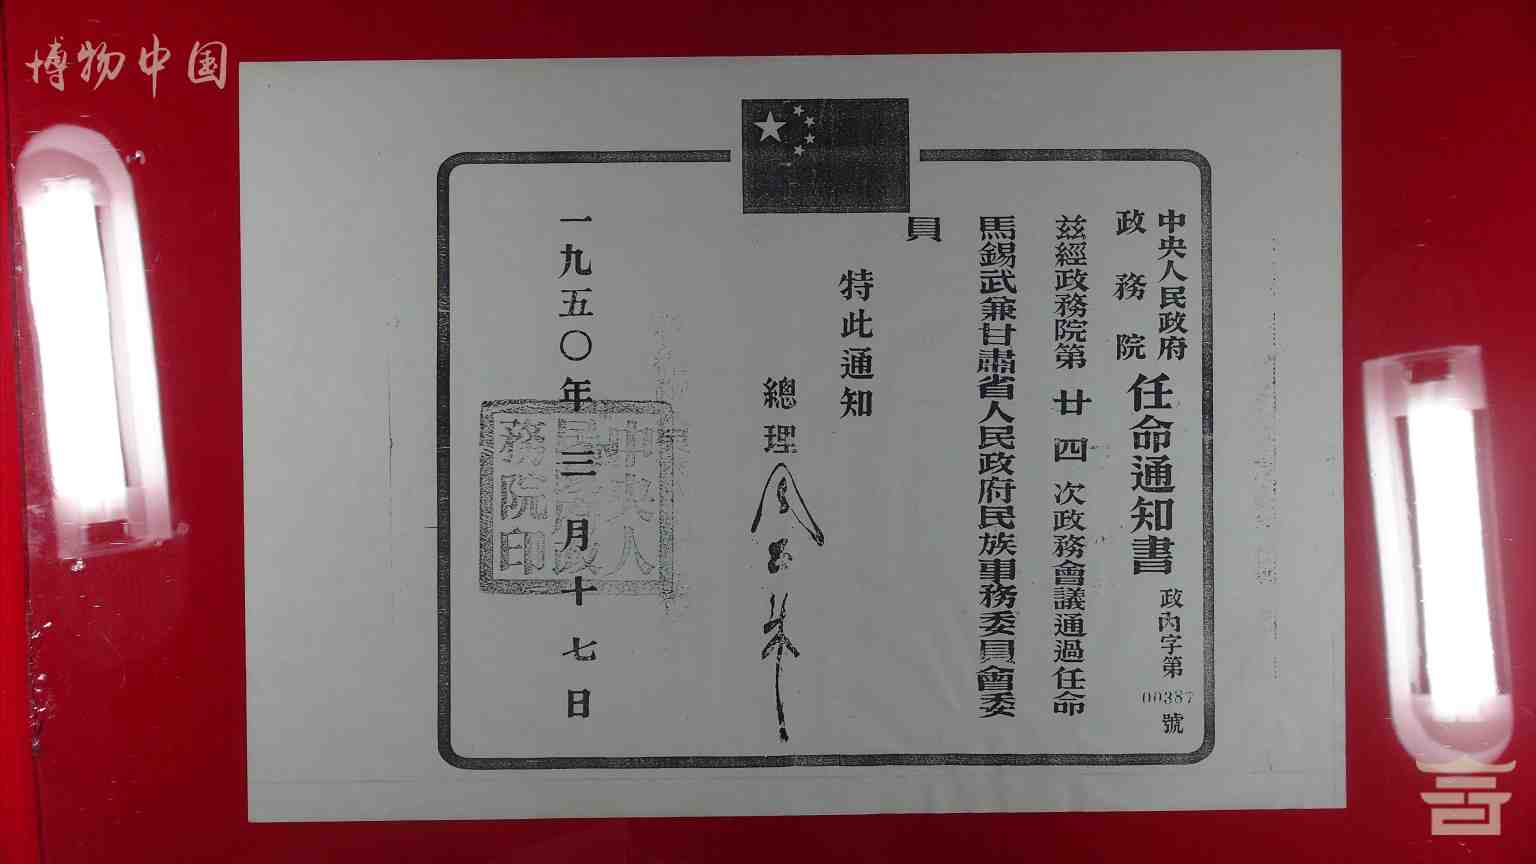 博物中国
中央人民政府
政務院
任命通知書
政內字第00387號
茲經政務院第廿四次政務會議通過任命
馬錫武兼甘肅省人民政府民族事務委員會委
員
特此通知
總理 周恩来
一九五〇年三月十七日
中央人
民政府政
務院印